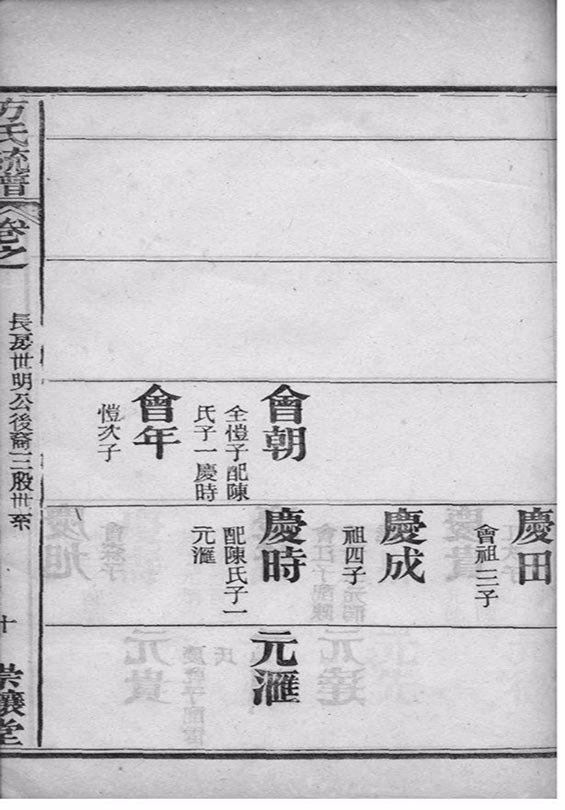 會朝
全愷子配陳
氏子一慶時
會年
愷次子
慶田
會祖三子
慶成
祖四子
慶時
配陳氏子一
元滙
元滙
方氏統譜
卷之
長房世明公後裔三股世系
十
崇讓堂